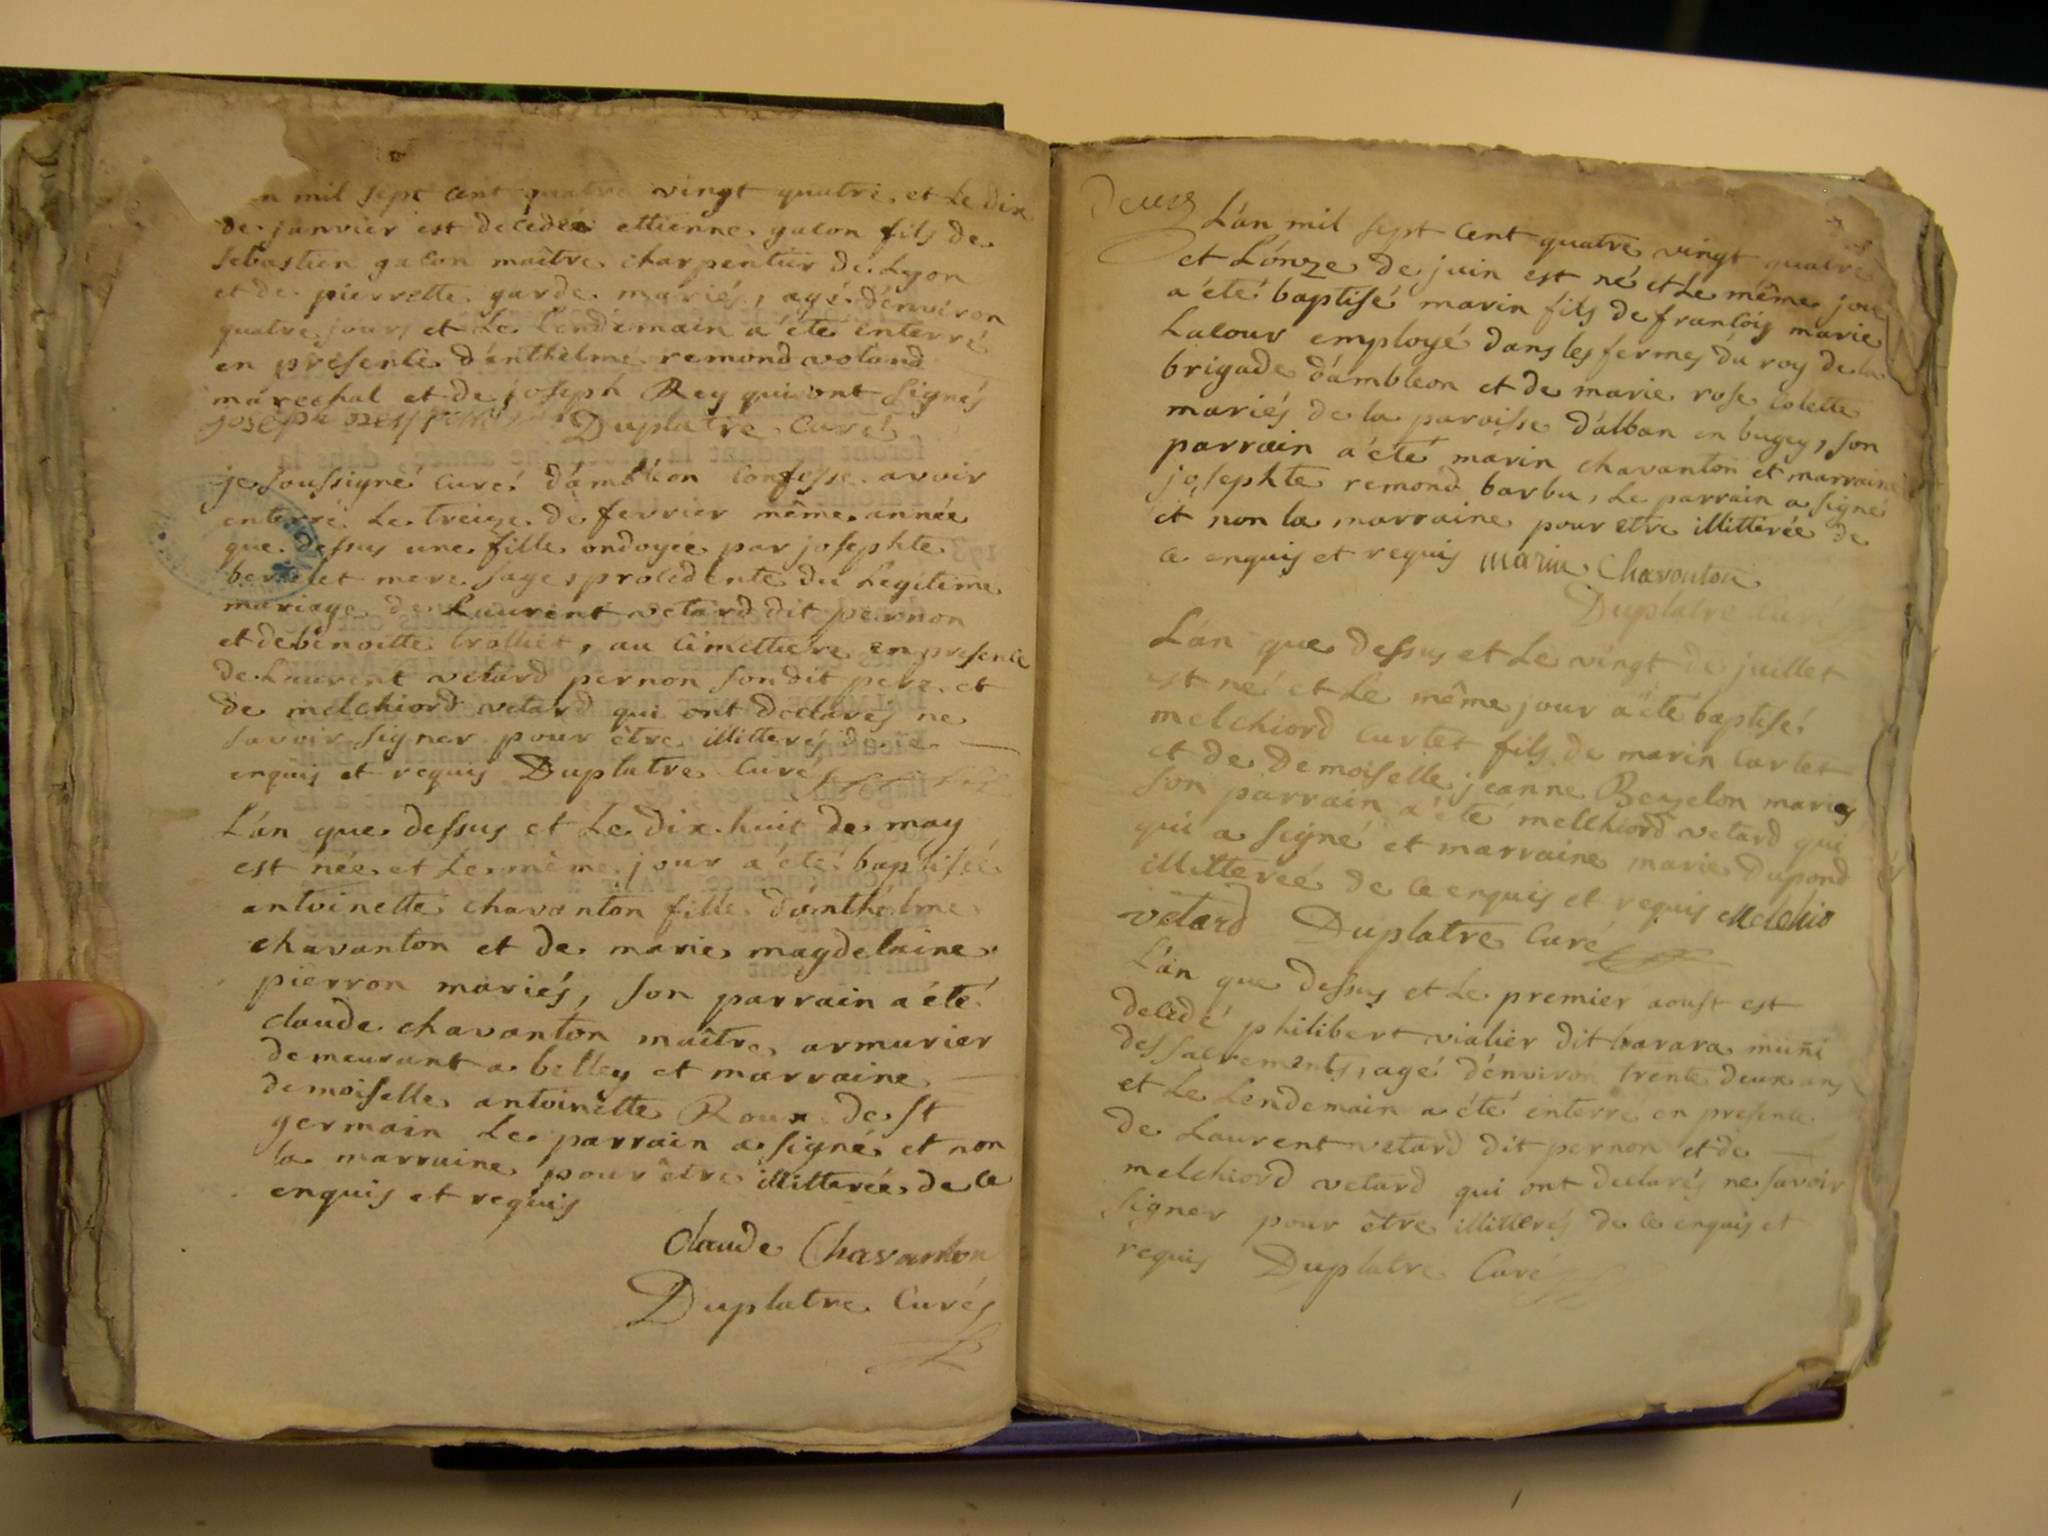 n mil sept cent quatre vingt quatre, et Le dix
de janvier est decédé ettienne galon fils de
sebastien galon maître charpentier de Lyon
et de pierrette garde mariés, agé d'environ
quatre jours et Le Lendemain a été enterré
en présence d'anthelme remond voland
maréchal et de joseph Rey qui ont signés
joseph Rey Duplatre Curé
je soussigné Curé d'ambléon Confesse avoir
enterré Le treize de fevrier même année
que dessus une fille ondoyée par josephte
mere sage, procedente du Legitime
mariage de Laurent vetard dit pernon
et de benoitte trolliet, au Cimettiere en presence
de Laurent vetard pernon son dit pere et
de melchiord vetard qui ont déclarés ne
savoir signer pour être illitterés de ce
enquis et requis Duplatre Curé
L'an que dessus et Le dix huit de may
est née et Le même jour a été baptisée
antoinette chavanton fille d'anthelme
chavanton et de marie magdelaine
pierron mariés, son parrain a été
claude chavanton maître armurier
demeurant a belley et marraine
demoiselle antoinette Roux de st
germain Le parrain a signé et non
la marraine pour être illitterée de ce
enquis et requis
Claude Chavanton
Duplatre Curé
Deux
L'an mil sept cent quatre vingt quatre
et L'onze de juin est né et Le même jour
a été baptisé marin fils de françois marie
Lacour employé dans les fermes du roy de la
brigade d'ambleon et de marie rose Colette
mariés de la paroisse d'alban en bugey, son
parrain a été marin chavanton et marraine
josephte remond barbu, Le parrain a signé
et non la marraine pour etre illitterée de
ce enquis et requis marin Chavonton
Duplatre Curé
L'an que dessus et Le vingt de juillet
est né et Le même jour a été baptisé
melchiord curtet fils de marin Curtet
et de demoiselle jeanne Berzelon mariés
son parrain a été melchiord vetard qui
qui a signé et marraine marie Dupond
illitterée de ce enquis et requis Melchio
vetard Duplatre Curé
L'an que dessus et Le premier aoust est
decedé philibert vialier dit barara muni
des sacrements, agé d'environ trente deux ans
et Le Lendemain a été enterré en presence
de Laurent vetard dit pernon et de
melchiord vetard qui ont declarés ne savoir
signer pour être illitterés de ce enquis et
requis Duplatre Curé